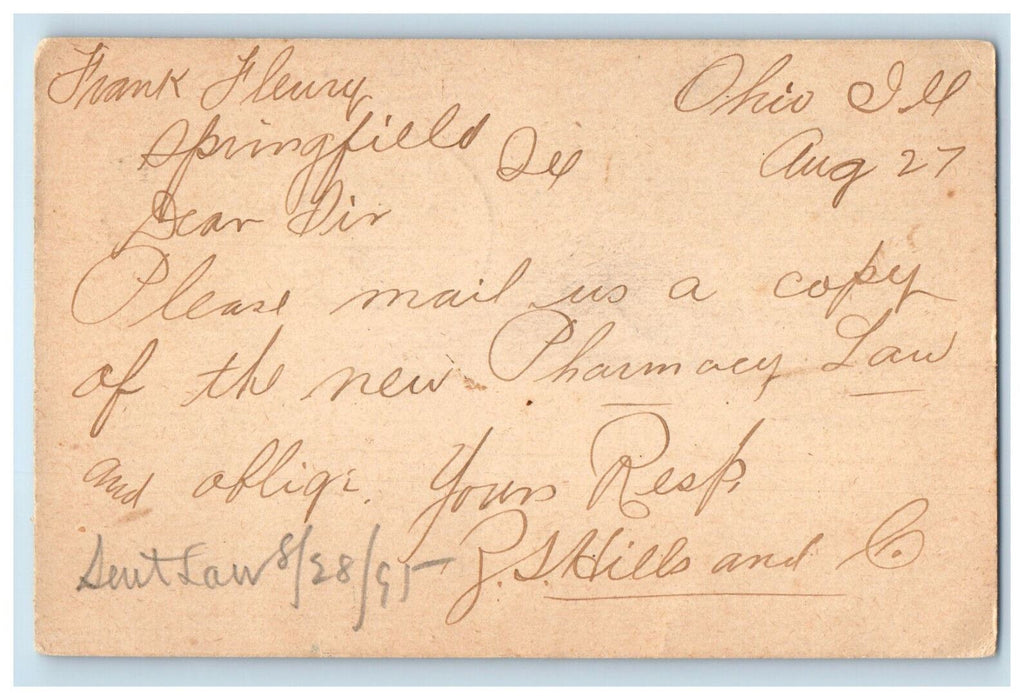 Frank Fleury Ohio Ill
Springfield Ill Aug 27
Dear Sir
Please mail us a copy
of the new Pharmacy Law
and oblige. Yours Resp.
S. Hills and Co
Sent Law 8/28/95